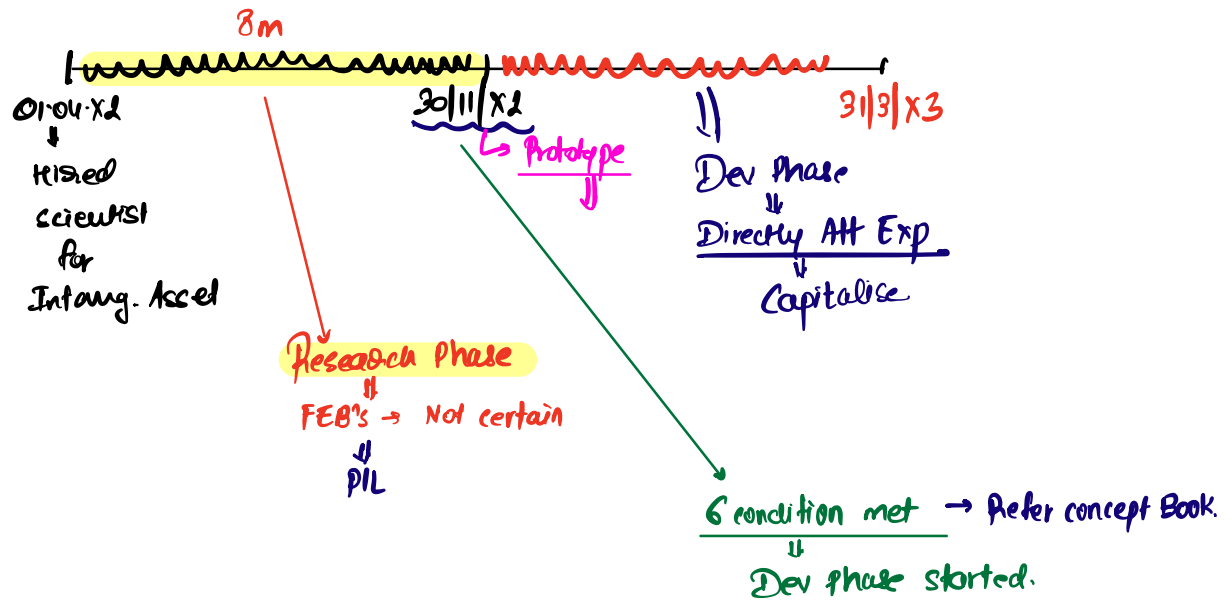 8m
01.04.X2
30/11/X2
31/3/X3
Hired
Scientist
for
Intang. Asset
Prototype
Dev Phase
Directly Att Exp
Capitalise
Research Phase
FEB's → Not certain
P/L
6 condition met → Refer concept Book.
Dev Phase started.